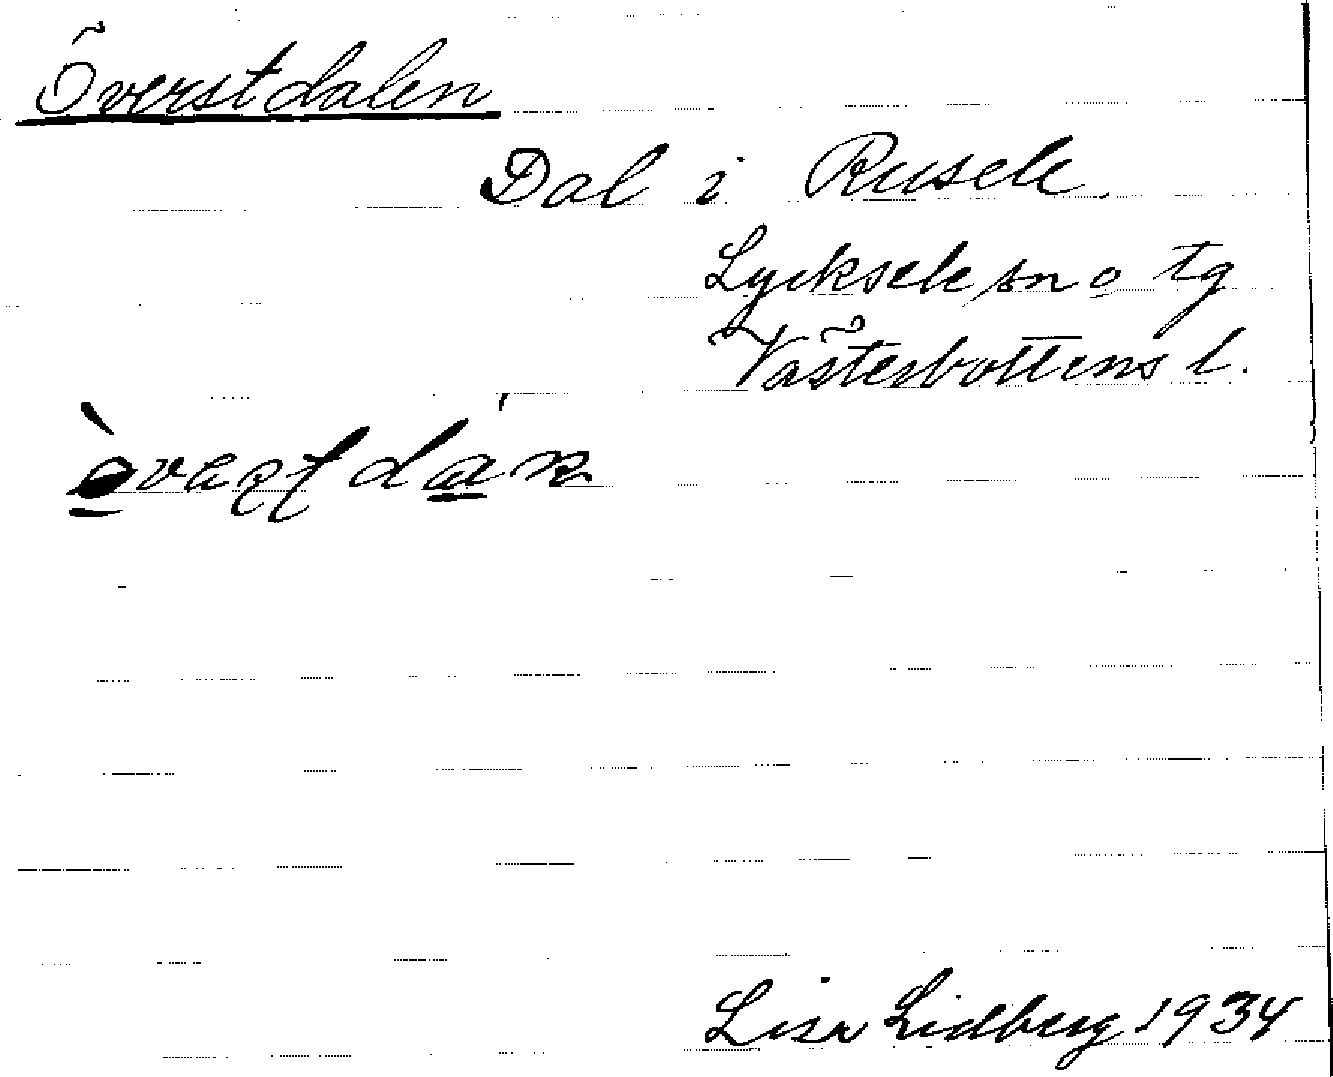 Överstdalen
Dal i Rusele
Lycksele sn o tg
Västerbottens l.
Lisa Lidberg 1934